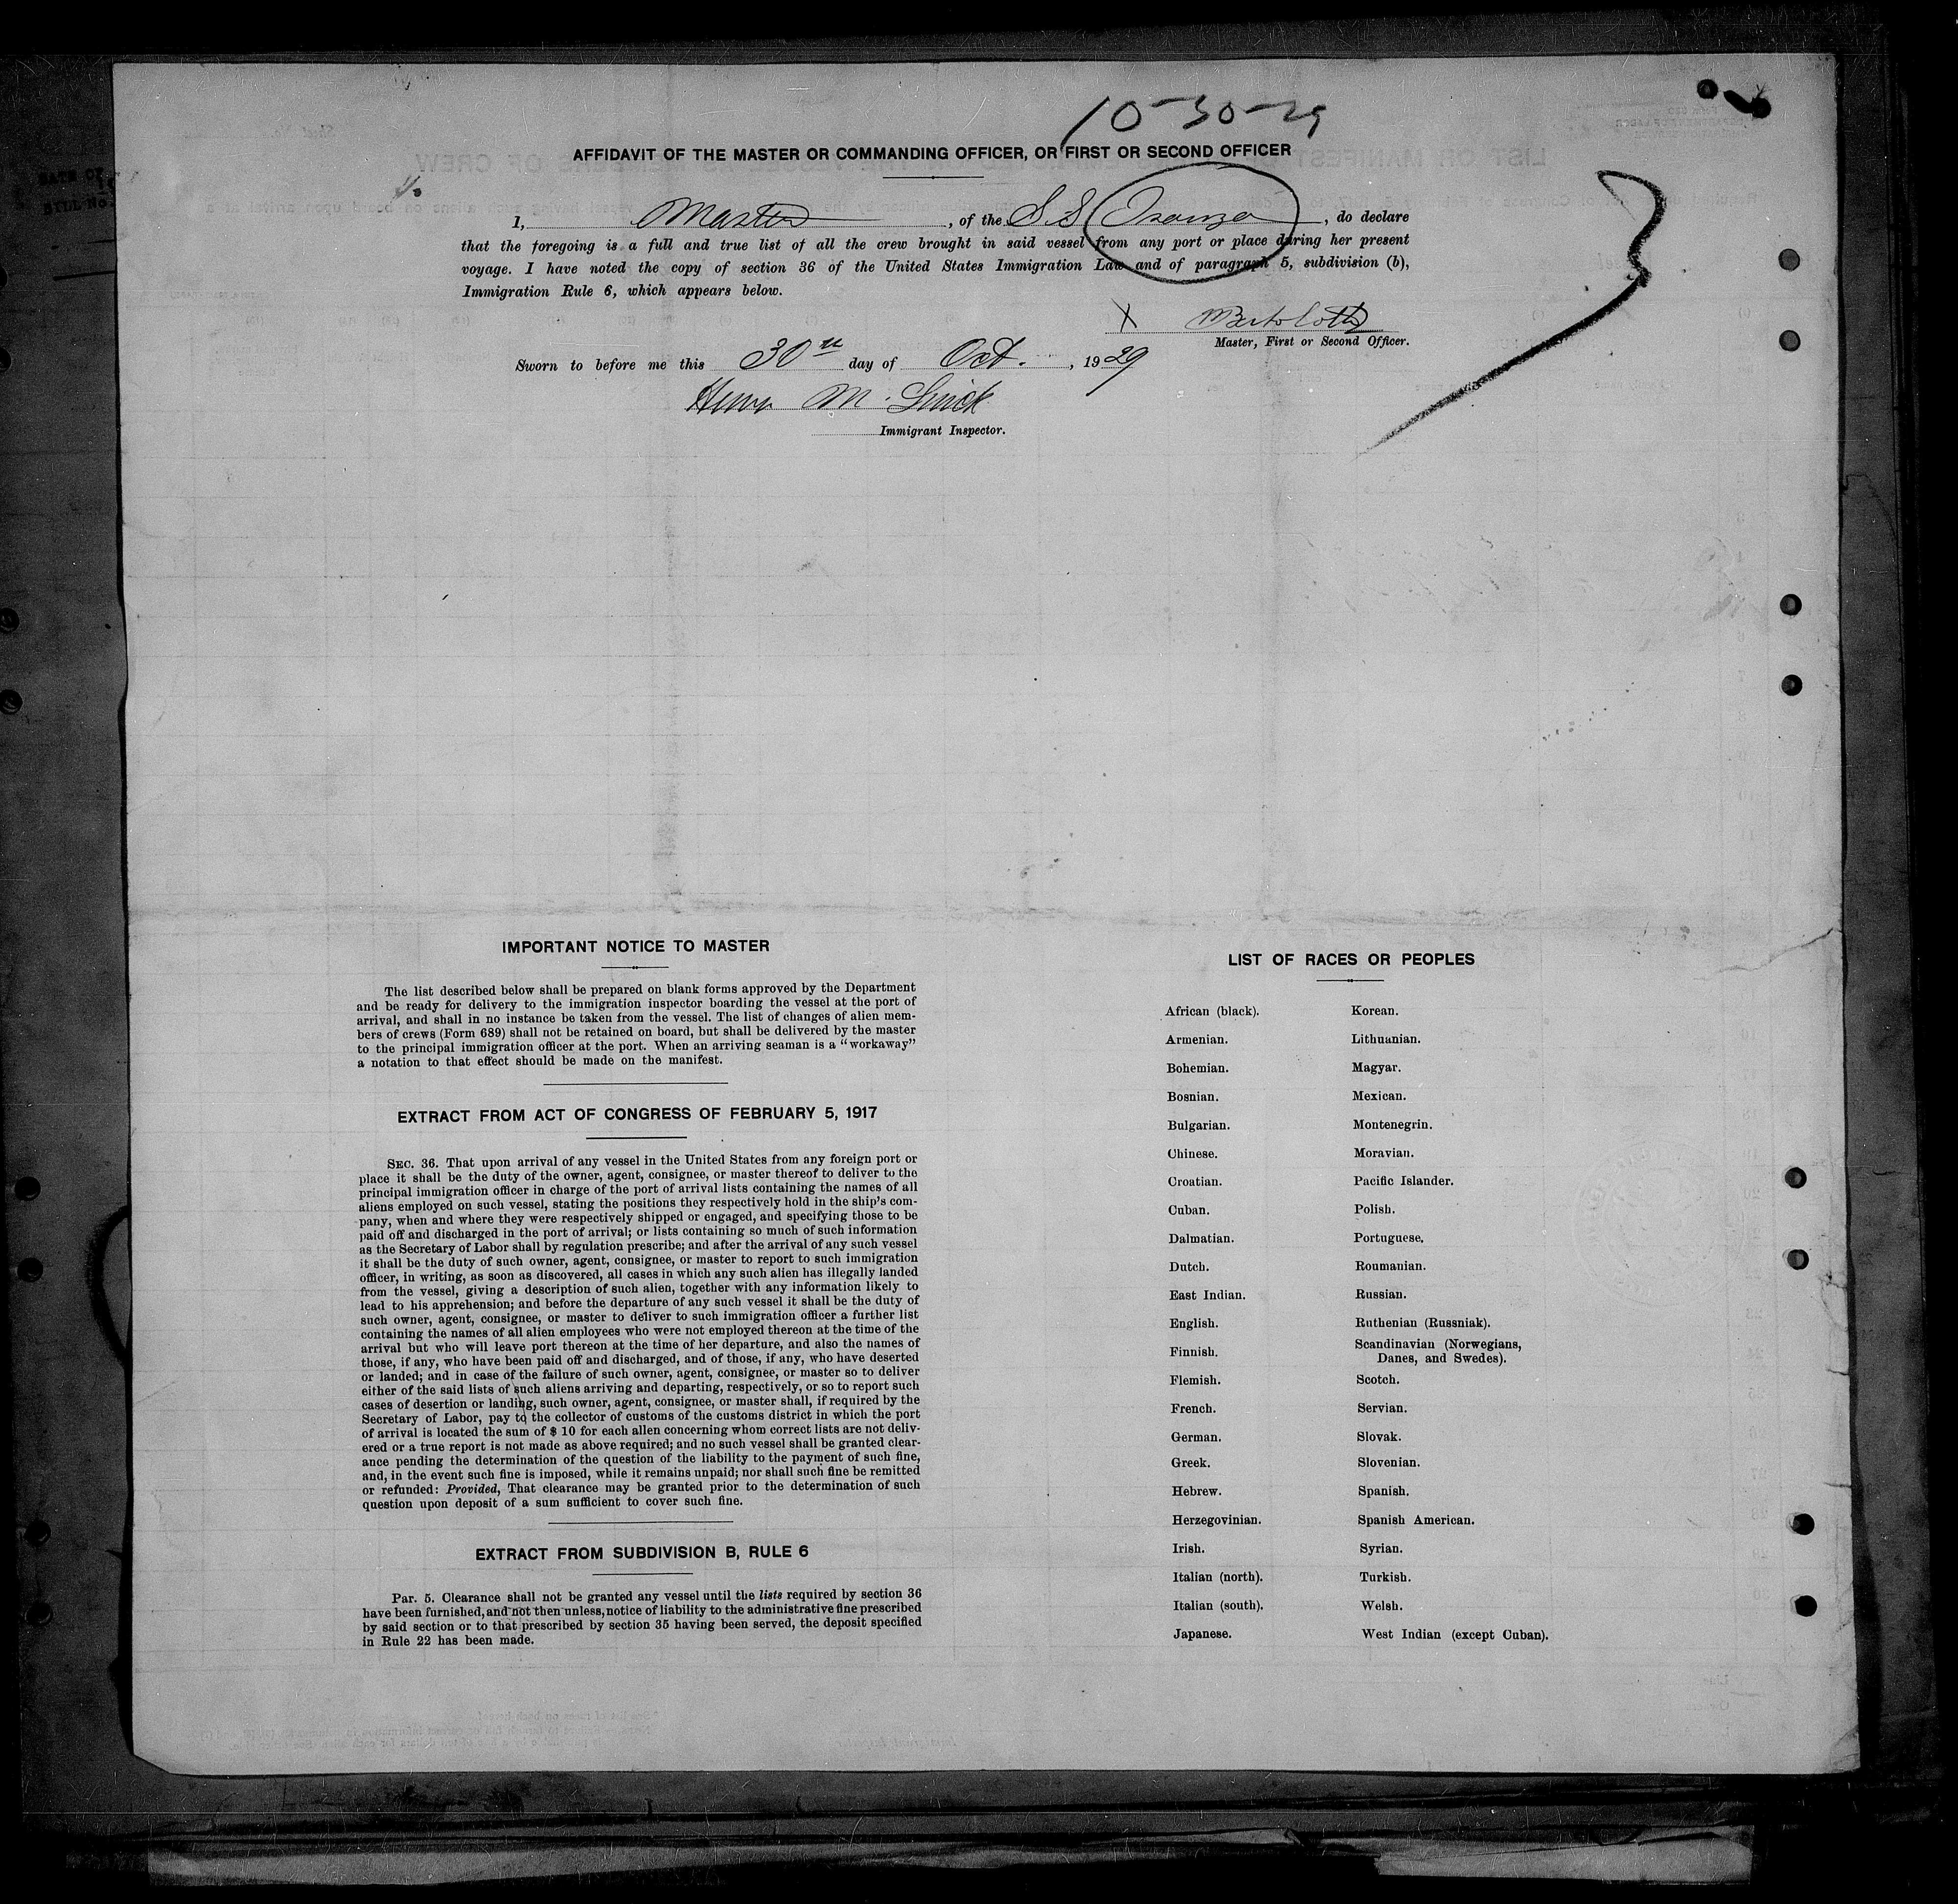 10-30-29
AFFIDAVIT OF THE MASTER OR COMMANDING OFFICER, OR FIRST OR SECOND OFFICER
I, Master, of the S.S. Isonzo, do declare
that the foregoing is a full and true list of all the crew brought in said vessel from any port or place during her present
voyage. I have noted the copy of section 36 of the United States Immigration Law and of paragraph 5, subdivision (b),
Immigration Rule 6, which appears below.
X Bertolotto
Master, First or Second Officer.
Sworn to before me this 30th day of Oct., 1929
Henry M.
Immigrant Inspector.
IMPORTANT NOTICE TO MASTER
The list described below shall be prepared on blank forms approved by the Department
and be ready for delivery to the immigration inspector boarding the vessel at the port of
arrival, and shall in no instance be taken from the vessel. The list of changes of alien mem-
bers of crews (Form 689) shall not be retained on board, but shall be delivered by the master
to the principal immigration officer at the port. When an arriving seaman is a "workaway"
a notation to that effect should be made on the manifest.
EXTRACT FROM ACT OF CONGRESS OF FEBRUARY 5, 1917
SEC. 36. That upon arrival of any vessel in the United States from any foreign port or
place it shall be the duty of the owner, agent, consignee, or master thereof to deliver to the
principal immigration officer in charge of the port of arrival lists containing the names of all
aliens employed on such vessel, stating the positions they respectively hold in the ship's com-
pany, when and where they were respectively shipped or engaged, and specifying those to be
paid off and discharged in the port of arrival; or lists containing so much of such information
as the Secretary of Labor shall by regulation prescribe; and after the arrival of any such vessel
it shall be the duty of such owner, agent, consignee, or master to report to such immigration
officer, in writing, as soon as discovered, all cases in which any such alien has illegally landed
from the vessel, giving a description of such alien, together with any information likely to
lead to his apprehension; and before the departure of any such vessel it shall be the duty of
such owner, agent, consignee, or master to deliver to such immigration officer a further list
containing the names of all alien employees who were not employed thereon at the time of the
arrival but who will leave port thereon at the time of her departure, and also the names of
those, if any, who have been paid off and discharged, and of those, if any, who have deserted
or landed; and in case of the failure of such owner, agent, consignee, or master so to deliver
either of the said lists of such aliens arriving and departing, respectively, or so to report such
cases of desertion or landing, such owner, agent, consignee, or master shall, if required by the
Secretary of Labor, pay to the collector of customs of the customs district in which the port
of arrival is located the sum of $ 10 for each alien concerning whom correct lists are not deliv-
ered or a true report is not made as above required; and no such vessel shall be granted clear-
ance pending the determination of the question of the liability to the payment of such fine,
and, in the event such fine is imposed, while it remains unpaid; nor shall such fine be remitted
or refunded: Provided, That clearance may be granted prior to the determination of such
question upon deposit of a sum sufficient to cover such fine.
EXTRACT FROM SUBDIVISION B, RULE 6
Par. 5. Clearance shall not be granted any vessel until the lists required by section 36
have been furnished, and not then unless, notice of liability to the administrative fine prescribed
by said section or to that prescribed by section 35 having been served, the deposit specified
in Rule 22 has been made.
LIST OF RACES OR PEOPLES
African (black). Korean.
Armenian. Lithuanian.
Bohemian. Magyar.
Bosnian. Mexican.
Bulgarian. Montenegrin.
Chinese. Moravian.
Croatian. Pacific Islander.
Cuban. Polish.
Dalmatian. Portuguese.
Dutch. Roumanian.
East Indian. Russian.
English. Ruthenian (Russniak).
Finnish. Scandinavian (Norwegians,
Danes, and Swedes).
Flemish. Scotch.
French. Servian.
German. Slovak.
Greek. Slovenian.
Hebrew. Spanish.
Herzegovinian. Spanish American.
Irish. Syrian.
Italian (north). Turkish.
Italian (south). Welsh.
Japanese. West Indian (except Cuban).